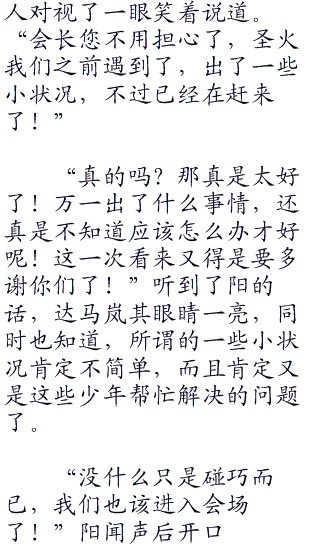 人对视了一眼笑着说道。
“会长您不用担心了，圣火
我们之前遇到了，出了一些
小状况，不过已经在赶来
了！”
“真的吗？那真是太好
了！万一出了什么事情，还
真是不知道应该怎么办才好
呢！这一次看来又得是要多
谢你们了！”听到了阳的
话，达马岚其眼睛一亮，同
时也知道，所谓的一些小状
况肯定不简单，而且肯定又
是这些少年帮忙解决的问题
了。
“没什么只是碰巧而
已，我们也该进入会场
了！”阳闻声后开口